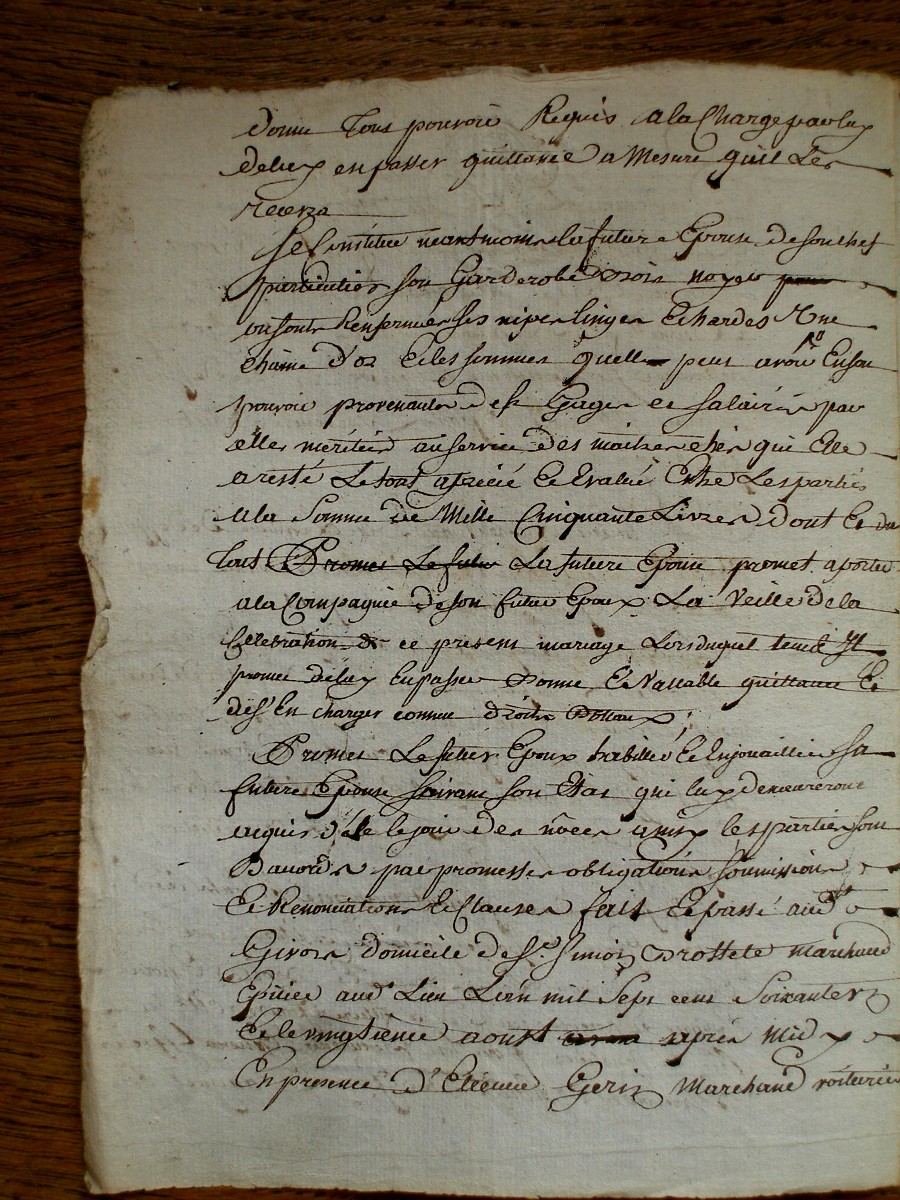 donne tous pouvoir Requis a la Charge par luy
de luy en passer quittance a Mesure quil Les
recevra
Se Constitue neantmoins la future Epouse de son chef
particulier son Garderobe bois noyer
ou sont Renfermés ses nipes linges Et hardes Une
chaine d'or Et les sommes quelle peut avoir En son
pouvoir provenants de ses Gages et salaires par
elle mérités au service des maitres chés qui Elle
a resté Le tout aprécié Et Evalué Entre Les parties
a la Somme de Mille Cinquante Livres Dont Et du
tout Promet Le futur La future Epouse promet aporter
a la Compagnie de son futur Epoux La Veille de la
Celebration de ce present mariage Lors duquel temps Il
promet de luy En passer bonne Et Vallable quittance Et
de s'En charger comme d'
Promet Le futur Epoux habiller Et Enjouailler sa
future Epouse suivant son Etat qui luy demeureront
acquis dés le jour des nôces ainsy les parties sont
D'accord par promesses obligations soumissions
Et Renonciations Et Clauses fait Et passé aud
Givors domicile de Sr. Simon marchand
Epicier aud. Lieu L'an mil Sept cent Soixante
Et le vingtième aoust après Midy
En presence d'Etienne Gerin Marchand voiturier